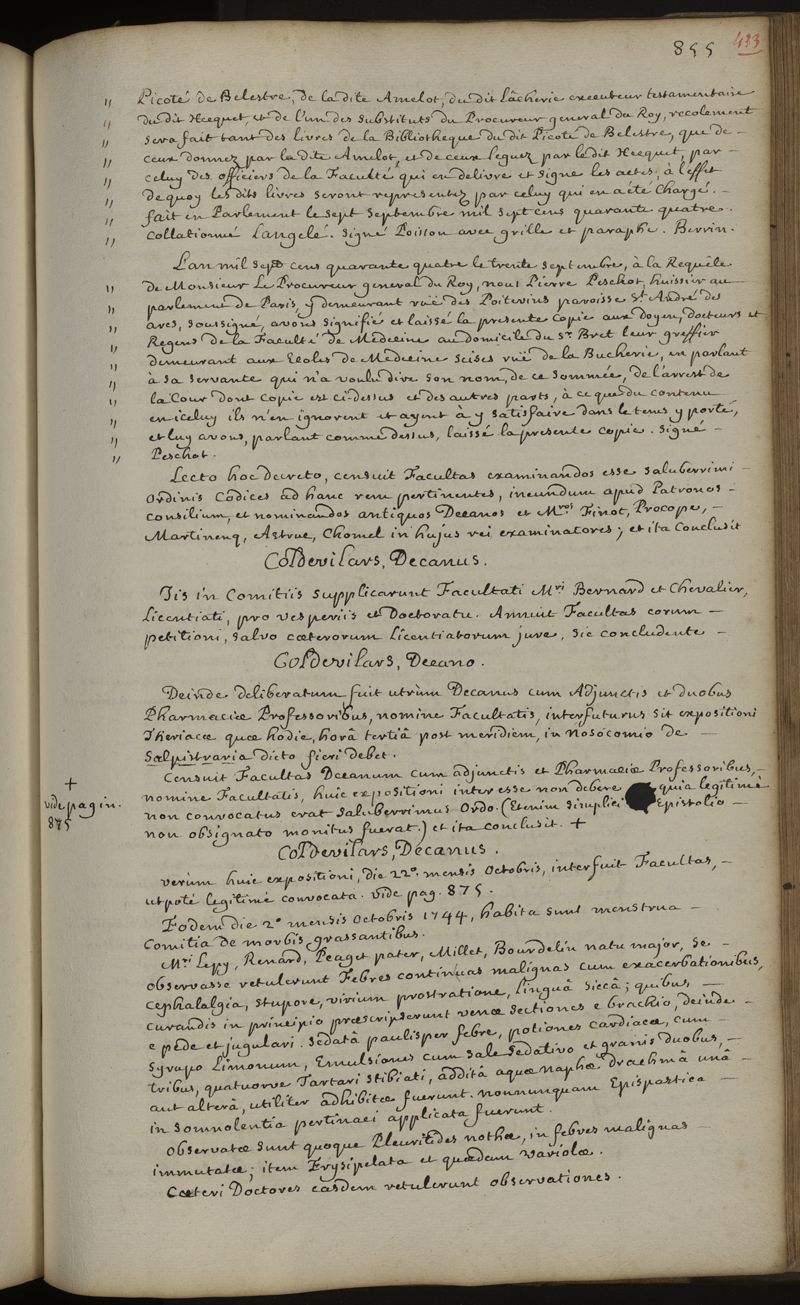 855 433
" Picoté de Belestre, de la dite Amelot, du dit Lâcherie executeur testamentaire
" du dit Hecquet, et de l'un des substituts du Procureur general du Roy, recolement
" sera fait tant des livres de la Bibliotheque du dit Picoté de Belestre, que de -
" ceux donnez par la dite Amelot, et de ceux leguez par le dit Hecquet, par -
" celuy des officiers de la Faculté qui en delivre et signe les actes; à l'effet
" de quoy les dits livres seront representez par celuy qui en a été chargé. -
" fait en Parlement le sept septembre mil sept cens quarante quatre.
" Collationné Langelé. signé Poisson avec grille et paraphe. Berrin.
L'an mil sept cens quarante quatre le trente septembre, à la Requête
" de Monsieur Le Procureur general du Roy, nous Pierre Peschot, huissier au
" parlement de Paris, y demeurant ruë des Poitevins paroisse St. André des
" arcs, soussigné, avons signifié et laissé la presente copie aux doyen, docteurs et
" Regens de la Faculté de Medecine au domicile du Sr. Bret leur greffier
" demeurant aux Ecoles de Medecine scises ruë de la Bucherie, en parlant
" à sa servante qui n'a voulu dire son nom, de ce sommée, de l'arrest de
" la Cour dont copie est ci-dessus et des autres parts, à ce que du contenu
" en iceluy ils n'en ignorent et ayent à y satisfaire dans le tems y porté,
" et luy avons, parlant comme dessus, laissé la presente copie. signé -
" Peschot.
Lecto hoc decreto, censuit Facultas examinandos esse saluberrimi -
Ordinis Codices ad hanc rem pertinentes, ineundum apud Patronos -
consilium, et nominandos antiquos Decanos et Mros Finot, Procope, -
Martinenq, Astruc, Chomel in hujus rei examinatores; et ita conclusit
Col De vilars, Decanus.
Iis in Comitiis supplicarunt Facultati Mri Bernard et Chevalier,
Licentiati, pro vesperiis et Doctoratu. Annuit Facultas eorum -
petitioni, salvo cæterorum Licentiatorum jure, sic concludente -
Col De vilars, Decano.
Deinde deliberatum fuit utrùm Decanus cum Adjunctis et duobus
Pharmaciæ Professoribus, nomine Facultatis, interfuturus sit expositioni
Theriacæ quæ hodie, horâ tertiâ post meridiem, in Nosocomio de -
Salpistraria dicto fieri debet.
Censuit Facultas Decanum cum adjunctis et Pharmaciæ Professoribus, -
nomine Facultatis, huic expositioni inter esse non debere quia legitimè
non convocatus erat saluberrimus Ordo. (Etenim simplici Epistolio -
non obsignato monitus fuerat.) et ita conclusit. +
+
vide pag in.
875
Col De vilars, Decanus.
verùm huic expositioni, die 22ª. mensis Octobris, interfuit Facultas, -
utpotè legitimè convocata. vide pag. 875.
Eodem die 2ª mensis Octobris 1744, habita sunt menstrua -
Comitia de morbis grassantibus.
Mri Lepy, Renard, Peaget pater, Millet, Bourdelin natu major, se -
observasse retulerunt Febres continuas malignas cum exacerbationibus,
cephalalgia, stupore, virium prostratione, linguâ siccâ; quibus -
curandis in principio præscripserunt venæ sectiones e brachio, deinde -
e pede et jugulari. sedatâ paulisper febre, potiones cardiacæ, cum -
syrupo Limonum, Emulsiones cum sale sedativo et granis duobus, -
tribus, quatuorve Tartari stibiati, additâ aquæ naphæ drachmâ unâ -
aut alterâ, utiliter adhibitæ fuerunt. nonnunquam Epispastica -
in somnolentia pertinaci applicata fuerunt.
Observatæ sunt quoque Pleuritides nothæ, in febres malignas -
immutatæ; item Erysipelata et quædam variolæ.
Cæteri Doctores easdem retulerunt observationes.